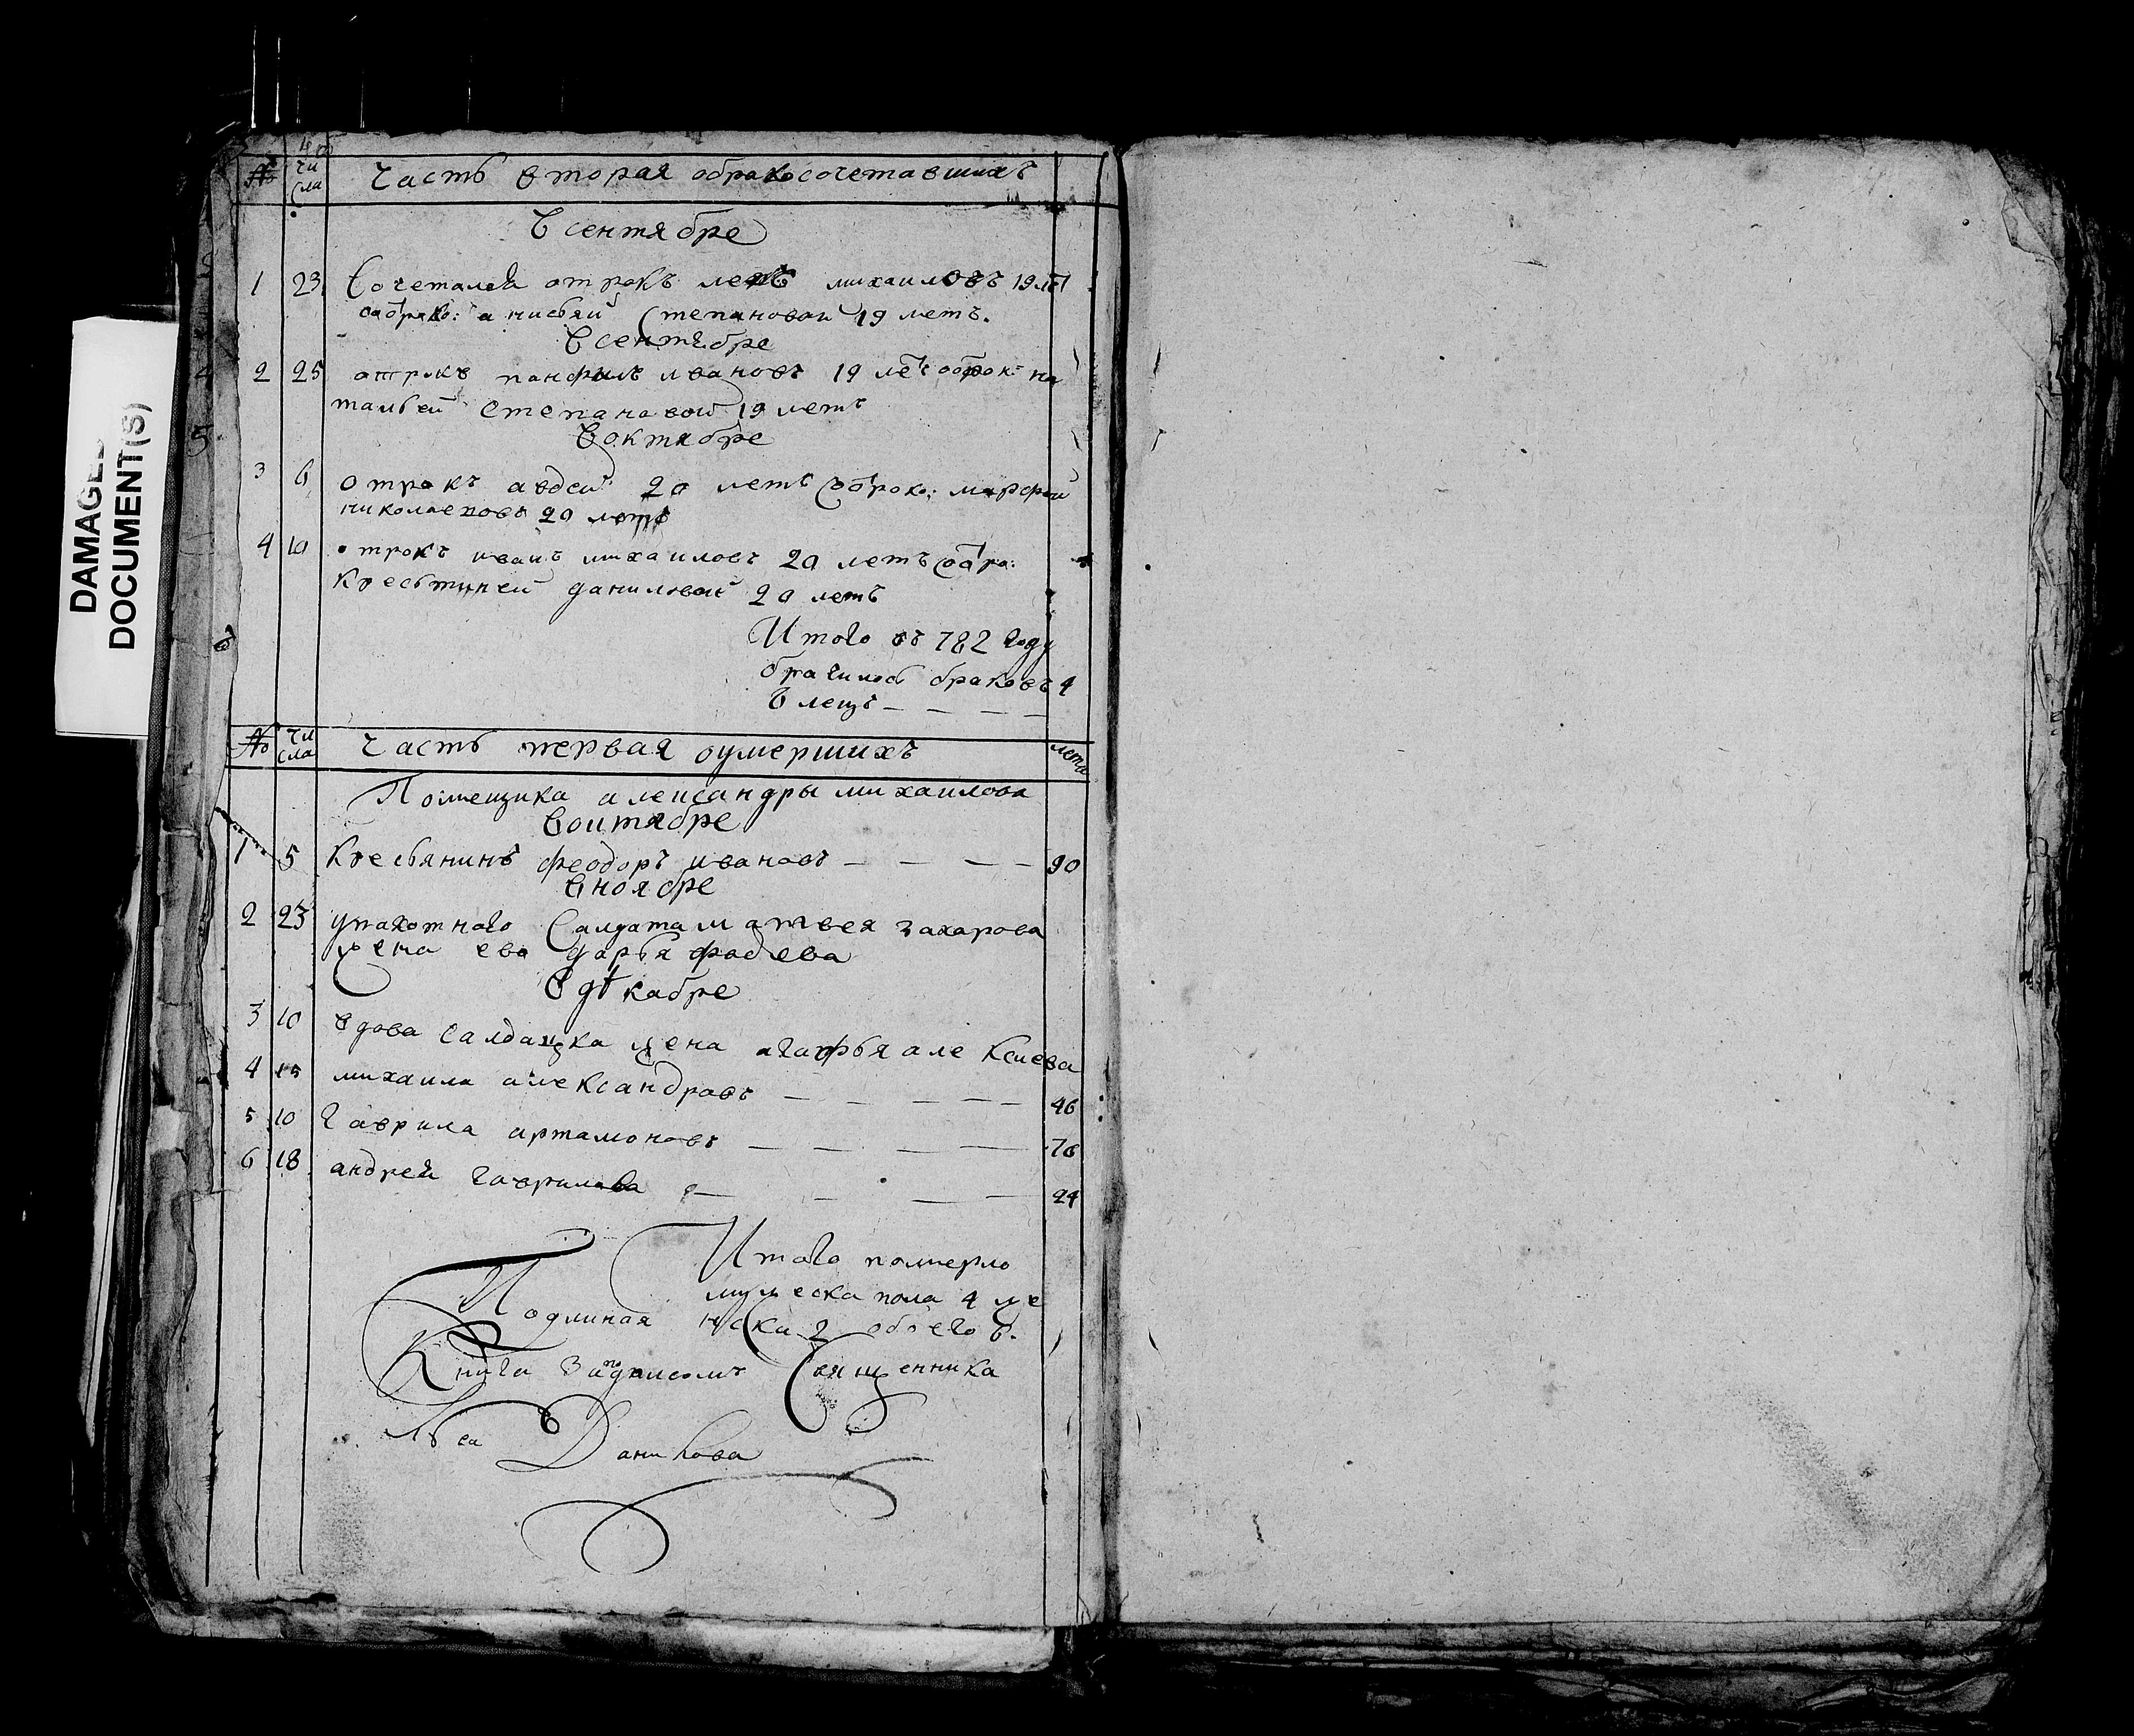 DAMAGED
DOCUMENT(S)
№ чи
сла
часть вторая обракосочетавшихъ
Всентябре
1 23 Сочеталса отрокъ михаиловъ 19 ле
Степановаи 19 летъ.
Всентябре
2 25 отрокъ панфилъ ивановъ 19 ле на
тальеи степановои 19 летъ
Воктябре
3 6 отрокъ авдеи 20 летъ марфои
николаеновъ 20 летъ
4 10 отрокъ иванъ михаиловъ 20 летъ
крестинеи даниловаи 20 летъ
Итого въ 782 году
браковъ 4
№ чи
сла часть первая оумершихъ лета
Помещика александры михаилова
Воктябре
1 5 Кресьянинъ феодоръ ивановъ 90
Вноябре
2 23 Салдата матвея захарова
жена ево дарья фадеева
В декабре
3 10 вдова салдацка жена агафья алексиева
4 15 михаила александравъ 46
5 10 гаврила артамоновъ 76
6 18 андреи гаврилова 24
Итого померло
мужеска пола 4 же
нска 2 обоего 6.
Подлиная
Книга Священника
Данилова